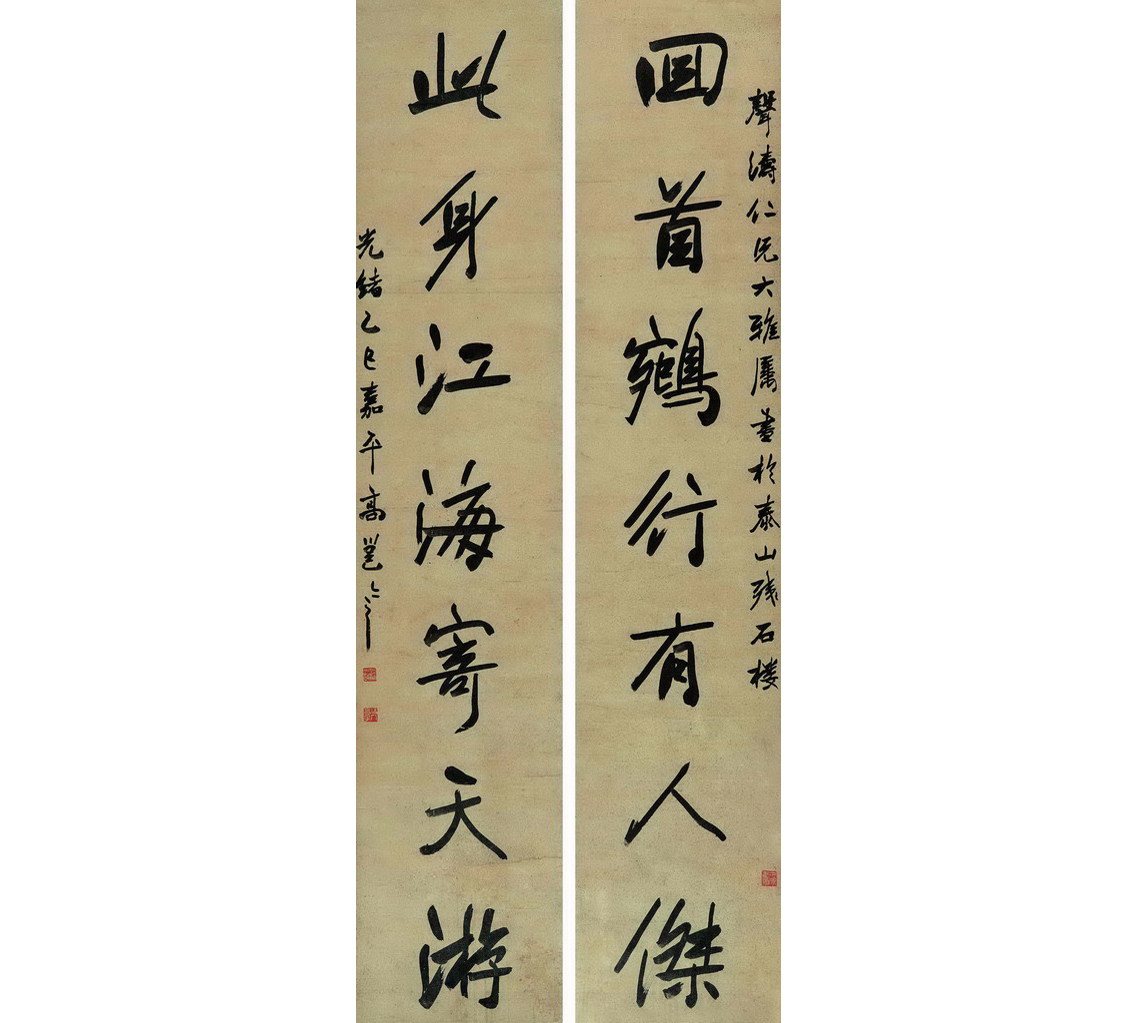 聲濤仁兄大雅屬書於泰山殘石樓
回首鵷行有人傑
此身江海寄天游
光緒乙巳嘉平高邕